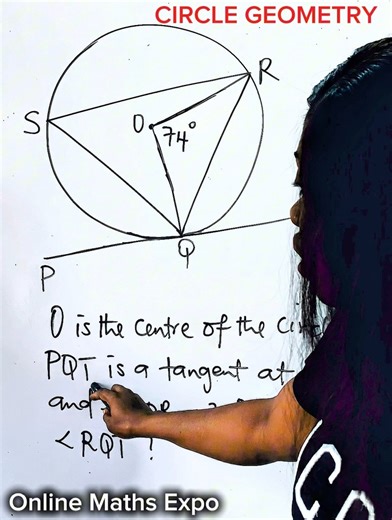 CIRCLE GEOMETRY
R
S
O
74°
Q
P
O is the centre of the
PQT is a tangent at
and
<RQT ?
Online Maths Expo